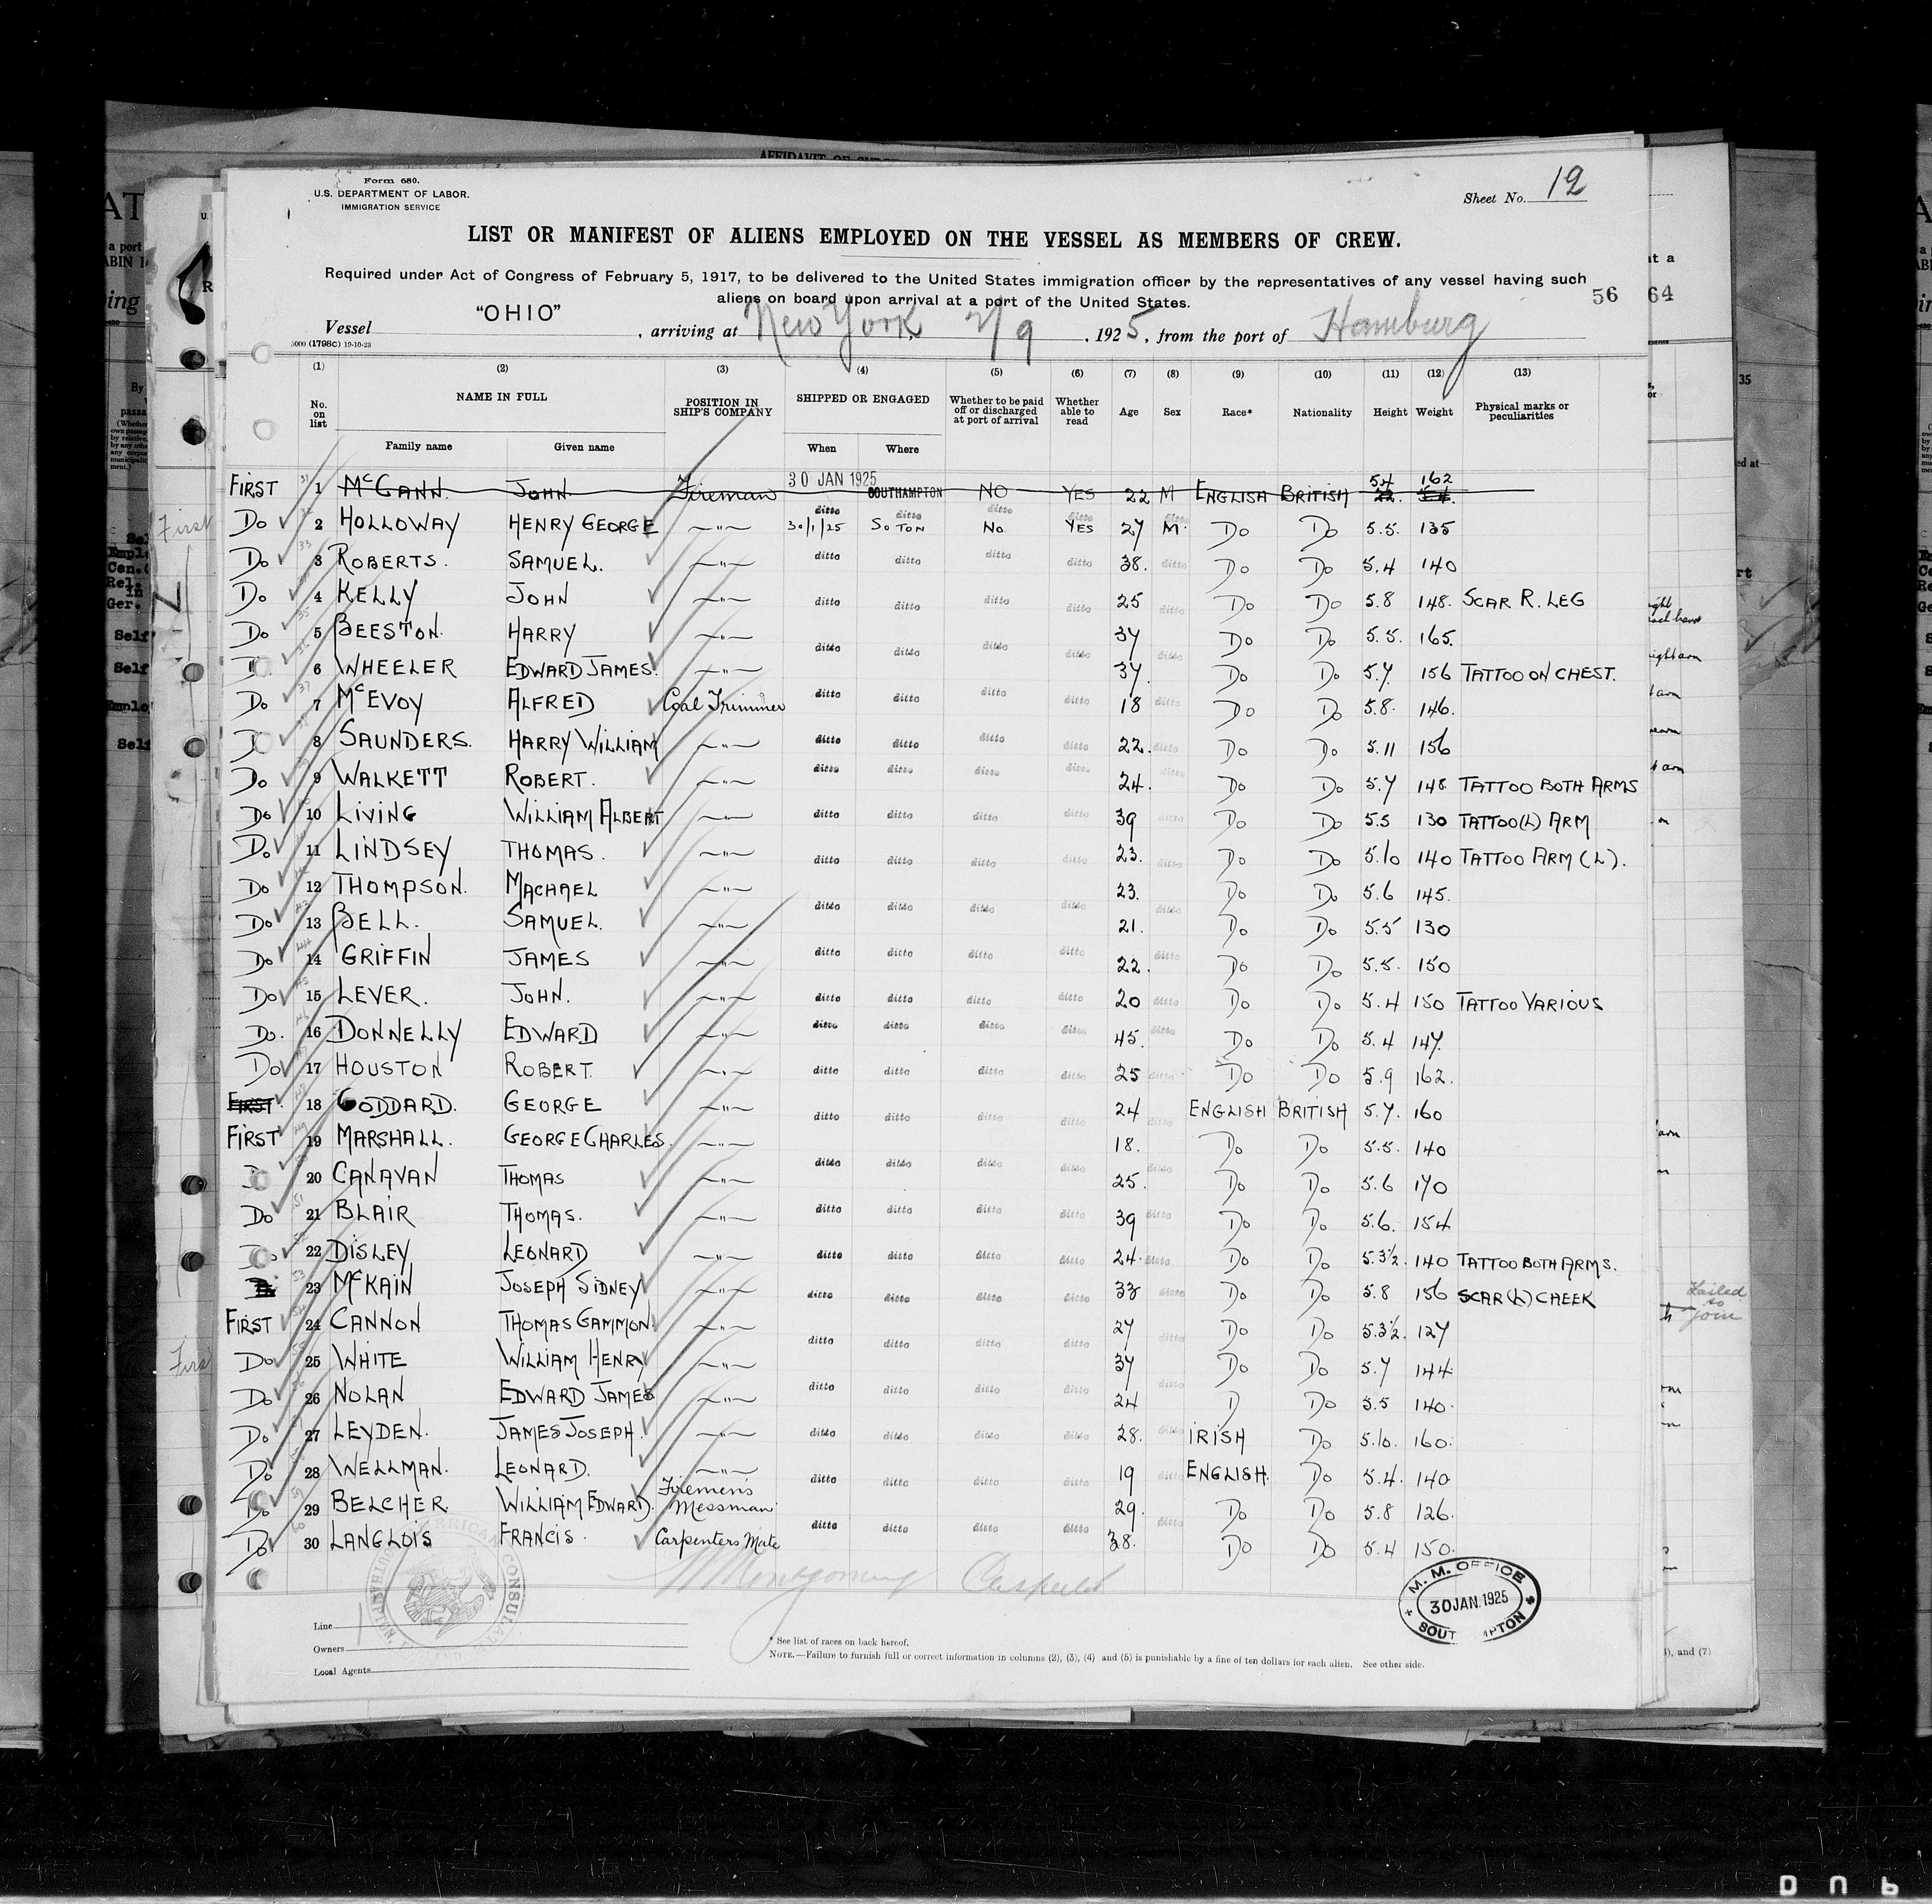 Form 680.
U.S. DEPARTMENT OF LABOR.
IMMIGRATION SERVICE
Sheet No. 12
LIST OR MANIFEST OF ALIENS EMPLOYED ON THE VESSEL AS MEMBERS OF CREW.
Required under Act of Congress of February 5, 1917, to be delivered to the United States immigration officer by the representatives of any vessel having such
aliens on board upon arrival at a port of the United States.
56 64
Vessel "OHIO", arriving at New York, 2/9, 1925, from the port of Hamburg
5000 (1798c) 19-10-23
(1) (2) (3) (4) (5) (6) (7) (8) (9) (10) (11) (12) (13)
No. on list NAME IN FULL POSITION IN SHIP'S COMPANY SHIPPED OR ENGAGED Whether to be paid off or discharged at port of arrival Whether able to read Age Sex Race* Nationality Height Weight Physical marks or peculiarities
Family name Given name When Where
FIRST 1 McCANN. JOHN. Fireman 30 JAN 1925 SOUTHAMPTON NO YES 22 M ENGLISH BRITISH 5.4 162
Do 2 HOLLOWAY HENRY GEORGE —"— 30/1/25 SO TON No. YES 27 M. Do Do 5.5. 135
Do 3 ROBERTS. SAMUEL. —"— ditto ditto ditto 38. ditto Do Do 5.4 140
Do 4 KELLY JOHN —"— ditto ditto ditto ditto 25 ditto Do Do 5.8 148. SCAR R. LEG
Do 5 BEESTON. HARRY —"— ditto ditto ditto ditto 37 ditto Do Do 5.5. 165.
6 WHEELER EDWARD JAMES. —"— 37. Do Do 5.7. 156 TATTOO ON CHEST.
Do 7 McEVOY ALFRED Coal Trimmer ditto ditto ditto ditto 18 Do Do 5.8. 146.
8 SAUNDERS. HARRY WILLIAM —"— ditto ditto ditto ditto 22. ditto Do Do 5.11 156
Do 9 WALKETT ROBERT. —"— ditto ditto ditto ditto 24. ditto Do Do 5.7 148 TATTOO BOTH ARMS
Do 10 LIVING WILLIAM ALBERT —"— ditto ditto ditto ditto 39 ditto Do Do 5.5 130 TATTOO (L) ARM
Do 11 LINDSEY THOMAS. —"— ditto ditto ditto ditto 23. ditto Do Do 5.10 140 TATTOO ARM (L).
Do 12 THOMPSON. MACHAEL —"— 23. Do Do 5.6 145.
Do 13 BELL. SAMUEL. —"— ditto ditto ditto ditto 21. ditto Do Do 5.5 130
Do 14 GRIFFIN JAMES —"— ditto ditto ditto ditto 22. ditto Do Do 5.5. 150
Do 15 LEVER. JOHN. —"— ditto ditto ditto ditto 20 ditto Do Do 5.4 150 TATTOO VARIOUS
Do. 16 DONNELLY EDWARD —"— ditto ditto ditto ditto 45. ditto Do Do 5.4 147.
Do 17 HOUSTON ROBERT. —"— ditto ditto ditto ditto 25 ditto Do Do 5.9 162.
FIRST 18 GODDARD. GEORGE —"— ditto ditto ditto ditto 24 ditto ENGLISH BRITISH 5.7. 160
FIRST 19 MARSHALL. GEORGE CHARLES. —"— 18. Do Do 5.5. 140
20 CANAVAN THOMAS —"— ditto ditto ditto ditto 25. ditto Do Do 5.6 170
Do 21 BLAIR THOMAS. —"— ditto ditto ditto ditto 39 ditto Do Do 5.6. 154
22 DISLEY LEONARD —"— ditto ditto ditto ditto 24. ditto Do Do 5.3½. 140 TATTOO BOTH ARMS.
23 McKAIN JOSEPH SIDNEY —"— ditto ditto ditto ditto 33 ditto Do Do 5.8 156 SCAR (L) CHEEK
FIRST 24 CANNON THOMAS GAMMON. —"— 27 Do Do 5.3½. 127
Do 25 WHITE WILLIAM HENRY —"— ditto ditto ditto ditto 37 ditto Do Do 5.7 144
Do 26 NOLAN EDWARD JAMES —"— ditto ditto ditto ditto 24 ditto D Do 5.5 140.
Do 27 LEYDEN. JAMES JOSEPH. —"— ditto ditto ditto ditto 28. ditto IRISH Do 5.10. 160.
Do 28 WELLMAN. LEONARD. —"— ditto ditto ditto ditto 19 ditto ENGLISH. Do 5.4. 140
Do 29 BELCHER. WILLIAM EDWARD. Firemen's Messman 29. Do Do 5.8 126.
Do 30 LANGLOIS FRANCIS. Carpenters Mate ditto ditto ditto ditto 38. ditto Do Do 5.4 150.
First
Failed to join
M.M. OFFICE
30 JAN. 1925
Line
Owners
Local Agents
* See list of races on back hereof.
NOTE.—Failure to furnish full or correct information in columns (2), (3), (4) and (5) is punishable by a fine of ten dollars for each alien. See other side.
), and (7)